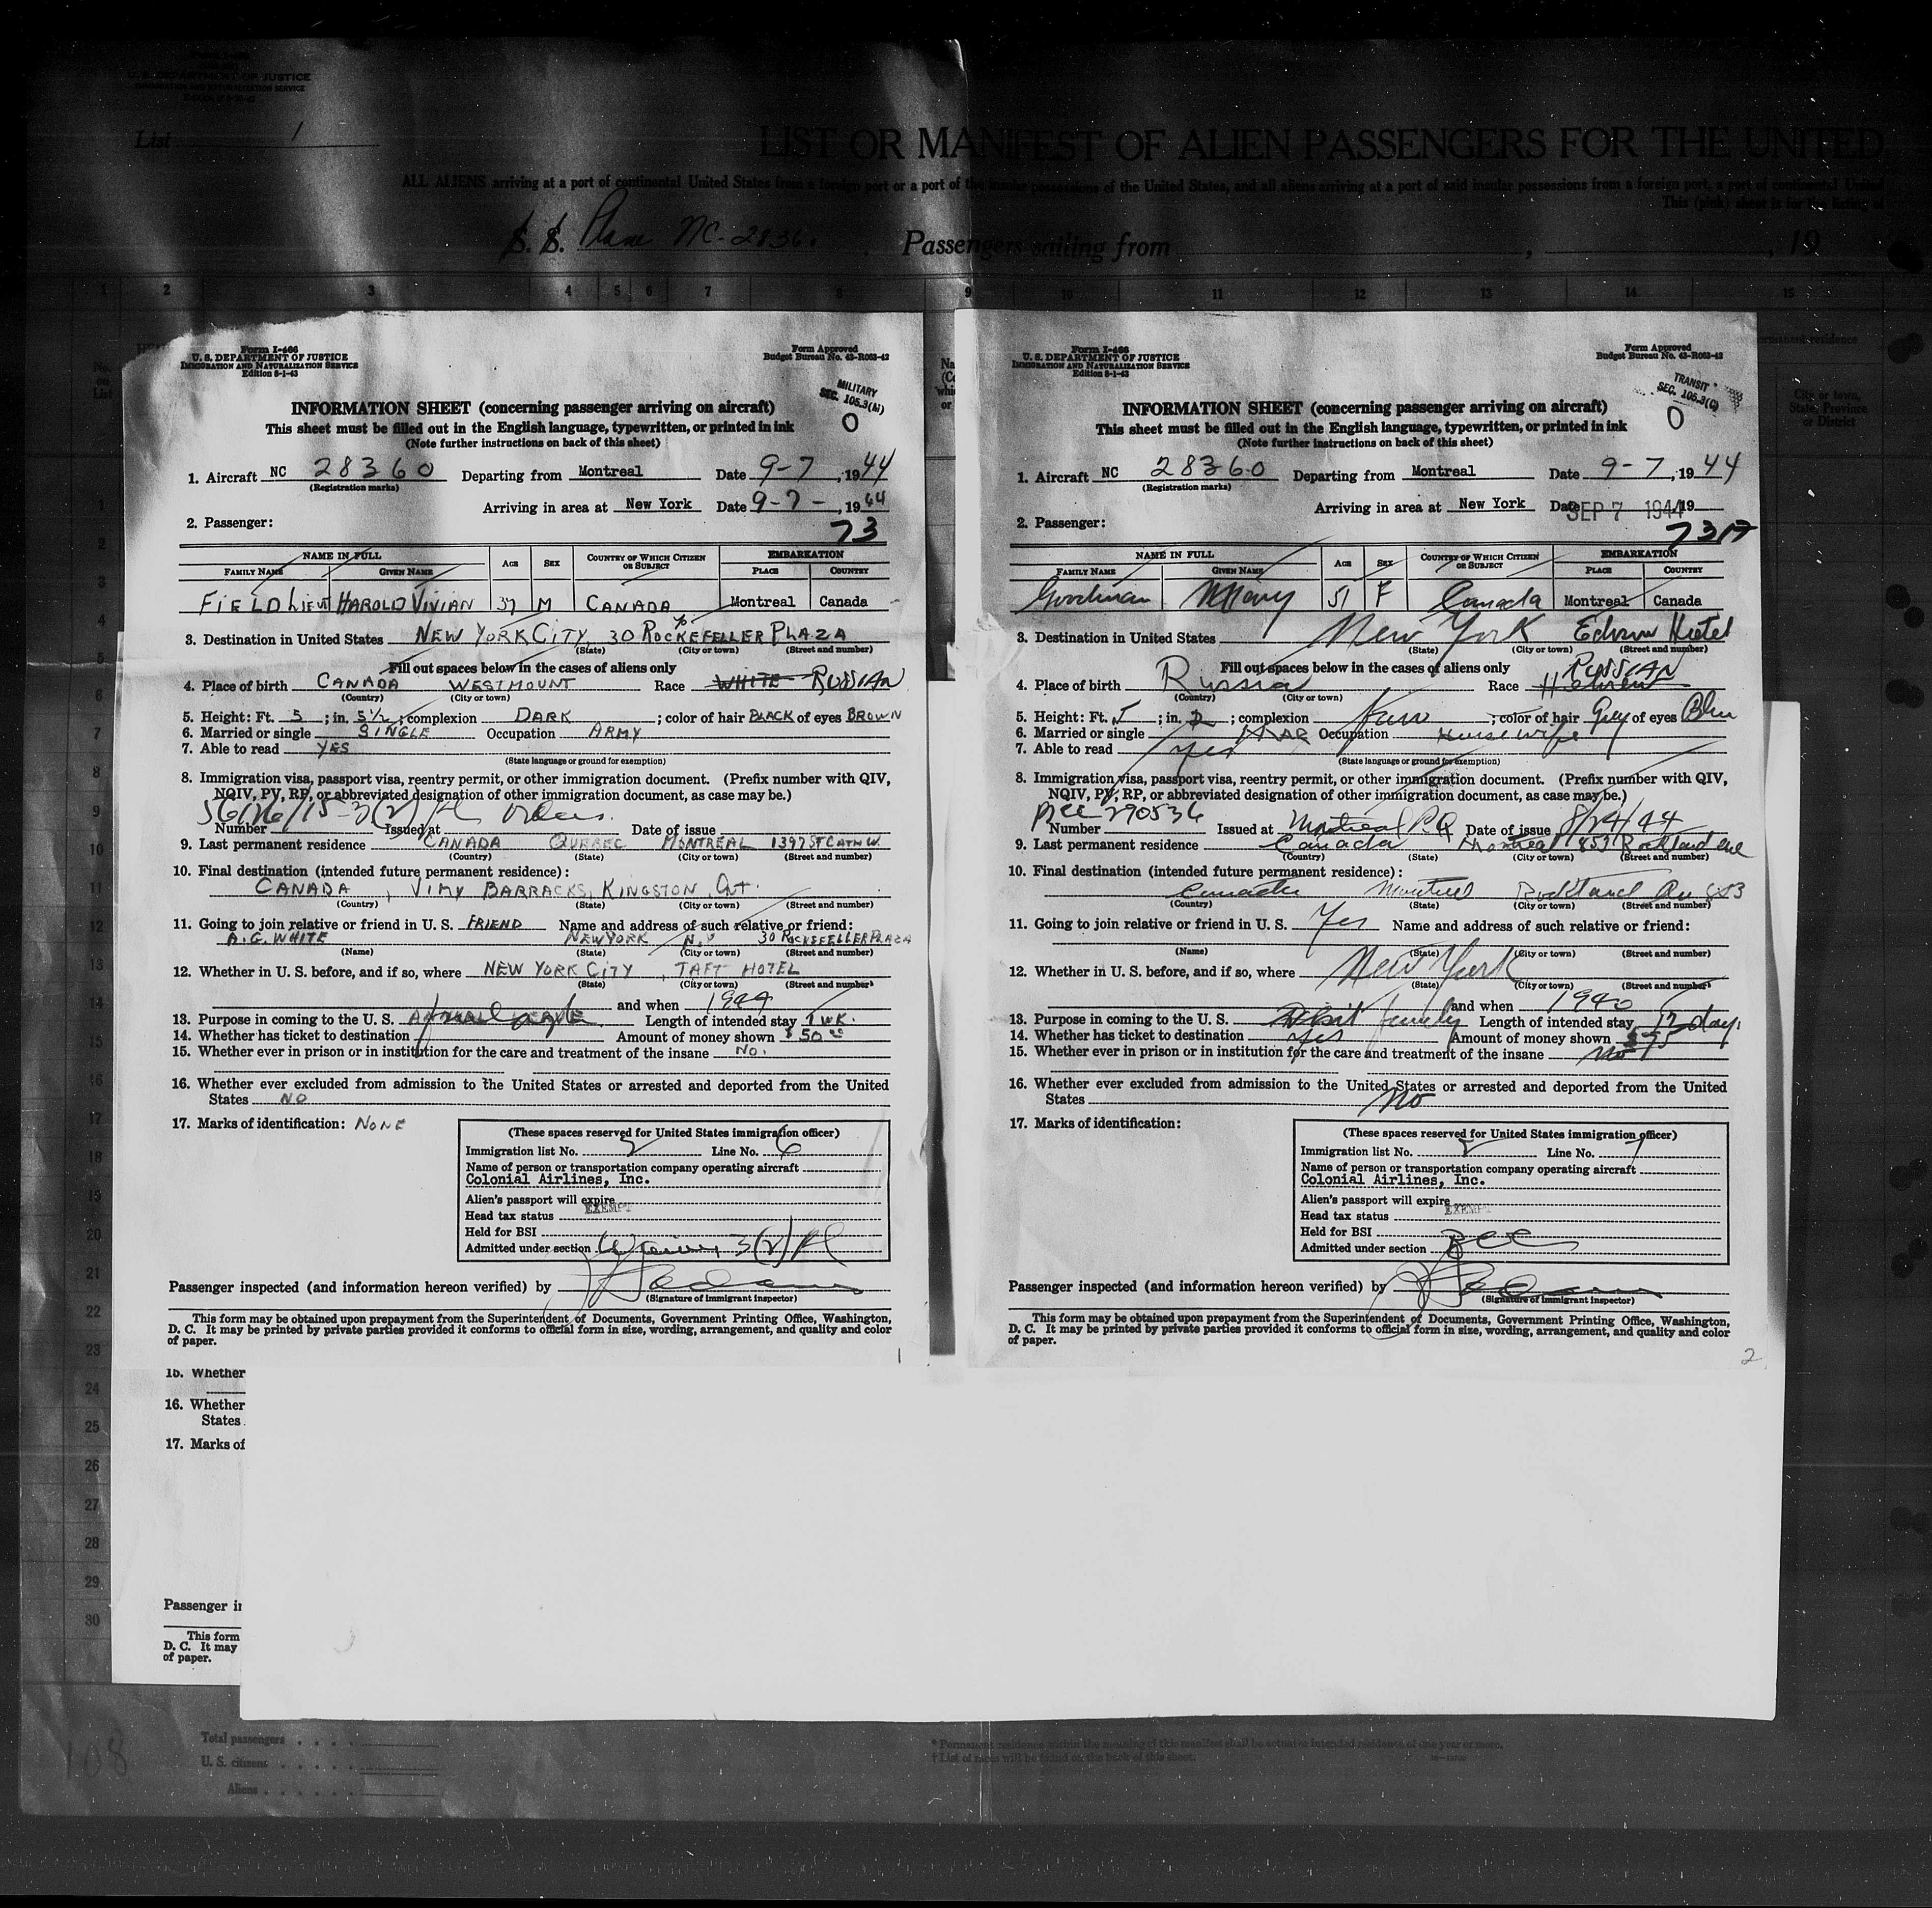 U. S. DEPARTMENT OF JUSTICE
IMMIGRATION AND NATURALIZATION SERVICE
List 1
LIST OR MANIFEST OF ALIEN PASSENGERS FOR THE UNITED
ALL ALIENS arriving at a port of continental United States from a foreign port or a port of the insular possessions of the United States, and all aliens arriving at a port of said insular possessions from a foreign port, a port of continental United
This (pink) sheet is for the listing of
S. S. Plane NC-28360 Passengers sailing from , , 19
1 2 3 4 5 6 7 8 9 10 11 12 13 14 15
Form I-466
U. S. DEPARTMENT OF JUSTICE
IMMIGRATION AND NATURALIZATION SERVICE
Edition 8-1-43
Form Approved
Budget Bureau No. 43-R063-42
MILITARY
SEC. 105.3(M)
0
INFORMATION SHEET (concerning passenger arriving on aircraft)
This sheet must be filled out in the English language, typewritten, or printed in ink
(Note further instructions on back of this sheet)
1. Aircraft NC 28360 Departing from Montreal Date 9-7, 1944
(Registration marks)
Arriving in area at New York Date 9-7-, 1944
2. Passenger: 73
NAME IN FULL AGE SEX COUNTRY OF WHICH CITIZEN OR SUBJECT EMBARKATION
FAMILY NAME GIVEN NAME PLACE COUNTRY
FIELD LIEUT HAROLD VIVIAN 37 M CANADA Montreal Canada
3. Destination in United States NEW YORK CITY, % 30 ROCKEFELLER PLAZA
(State) (City or town) (Street and number)
Fill out spaces below in the cases of aliens only
4. Place of birth CANADA WESTMOUNT Race WHITE RUSSIAN
(Country) (City or town)
5. Height: Ft. 5; in. 5 1/2; complexion DARK; color of hair BLACK of eyes BROWN
6. Married or single SINGLE Occupation ARMY
7. Able to read YES
(State language or ground for exemption)
8. Immigration visa, passport visa, reentry permit, or other immigration document. (Prefix number with QIV,
NQIV, PV, RP, or abbreviated designation of other immigration document, as case may be.)
Number Issued at Date of issue
9. Last permanent residence CANADA QUEBEC MONTREAL 1397 ST CATH W.
(Country) (State) (City or town) (Street and number)
10. Final destination (intended future permanent residence):
CANADA, VIMY BARRACKS, KINGSTON, Ont.
(Country) (State) (City or town) (Street and number)
11. Going to join relative or friend in U. S. FRIEND Name and address of such relative or friend:
A.G. WHITE NEW YORK N.Y 30 ROCKEFELLER PLAZA
(Name) (State) (City or town) (Street and number)
12. Whether in U. S. before, and if so, where NEW YORK CITY, TAFT HOTEL
(State) (City or town) (Street and number)
and when 1944
13. Purpose in coming to the U. S. Length of intended stay 1 WK.
14. Whether has ticket to destination Amount of money shown $50
15. Whether ever in prison or in institution for the care and treatment of the insane NO.
16. Whether ever excluded from admission to the United States or arrested and deported from the United
States NO
17. Marks of identification: NONE
(These spaces reserved for United States immigration officer)
Immigration list No. Line No. 6
Name of person or transportation company operating aircraft
Colonial Airlines, Inc.
Alien's passport will expire
Head tax status EXEMPT
Held for BSI
Admitted under section
Passenger inspected (and information hereon verified) by
(Signature of immigrant inspector)
This form may be obtained upon prepayment from the Superintendent of Documents, Government Printing Office, Washington,
D. C. It may be printed by private parties provided it conforms to official form in size, wording, arrangement, and quality and color
of paper.
1
Form I-466
U. S. DEPARTMENT OF JUSTICE
IMMIGRATION AND NATURALIZATION SERVICE
Edition 8-1-43
Form Approved
Budget Bureau No. 43-R063-42
TRANSIT
SEC. 105.3(C)
0
INFORMATION SHEET (concerning passenger arriving on aircraft)
This sheet must be filled out in the English language, typewritten, or printed in ink
(Note further instructions on back of this sheet)
1. Aircraft NC 28360 Departing from Montreal Date 9-7, 1944
(Registration marks)
Arriving in area at New York Date SEP 7 1944, 19
2. Passenger:
NAME IN FULL AGE SEX COUNTRY OF WHICH CITIZEN OR SUBJECT EMBARKATION
FAMILY NAME GIVEN NAME PLACE COUNTRY
Goodman Mary 51 F Canada Montreal Canada
3. Destination in United States New York Edison Hotel
(State) (City or town) (Street and number)
Fill out spaces below in the cases of aliens only
4. Place of birth Russia Race Hebrew RUSSIAN
(Country) (City or town)
5. Height: Ft. 5; in. 2; complexion; color of hair Grey of eyes Blue
6. Married or single Occupation Housewife
7. Able to read yes
(State language or ground for exemption)
8. Immigration visa, passport visa, reentry permit, or other immigration document. (Prefix number with QIV,
NQIV, PV, RP, or abbreviated designation of other immigration document, as case may be.)
Number 290536 Issued at Montreal P.Q Date of issue 8/24/44
9. Last permanent residence Canada Montreal 853 Rockland ave
(Country) (State) (City or town) (Street and number)
10. Final destination (intended future permanent residence):
Canada Montreal Rockland Av 853
(Country) (State) (City or town) (Street and number)
11. Going to join relative or friend in U. S. Yes Name and address of such relative or friend:
(Name) (State) (City or town) (Street and number)
12. Whether in U. S. before, and if so, where New York
(State) (City or town) (Street and number)
and when 1940
13. Purpose in coming to the U. S. Visit family Length of intended stay days
14. Whether has ticket to destination yes Amount of money shown $75
15. Whether ever in prison or in institution for the care and treatment of the insane no
16. Whether ever excluded from admission to the United States or arrested and deported from the United
States No
17. Marks of identification:
(These spaces reserved for United States immigration officer)
Immigration list No. Line No. 7
Name of person or transportation company operating aircraft
Colonial Airlines, Inc.
Alien's passport will expire
Head tax status EXEMPT
Held for BSI
Admitted under section BCC
Passenger inspected (and information hereon verified) by
(Signature of immigrant inspector)
This form may be obtained upon prepayment from the Superintendent of Documents, Government Printing Office, Washington,
D. C. It may be printed by private parties provided it conforms to official form in size, wording, arrangement, and quality and color
of paper.
2
15. Whether
16. Whether
States
17. Marks of
Passenger in
This form
D. C. It may
of paper.
108
Total passengers
U. S. citizens
Aliens
* Permanent residence within the meaning of this manifest shall be actual or intended residence of one year or more.
† List of races will be found on the back of this sheet.